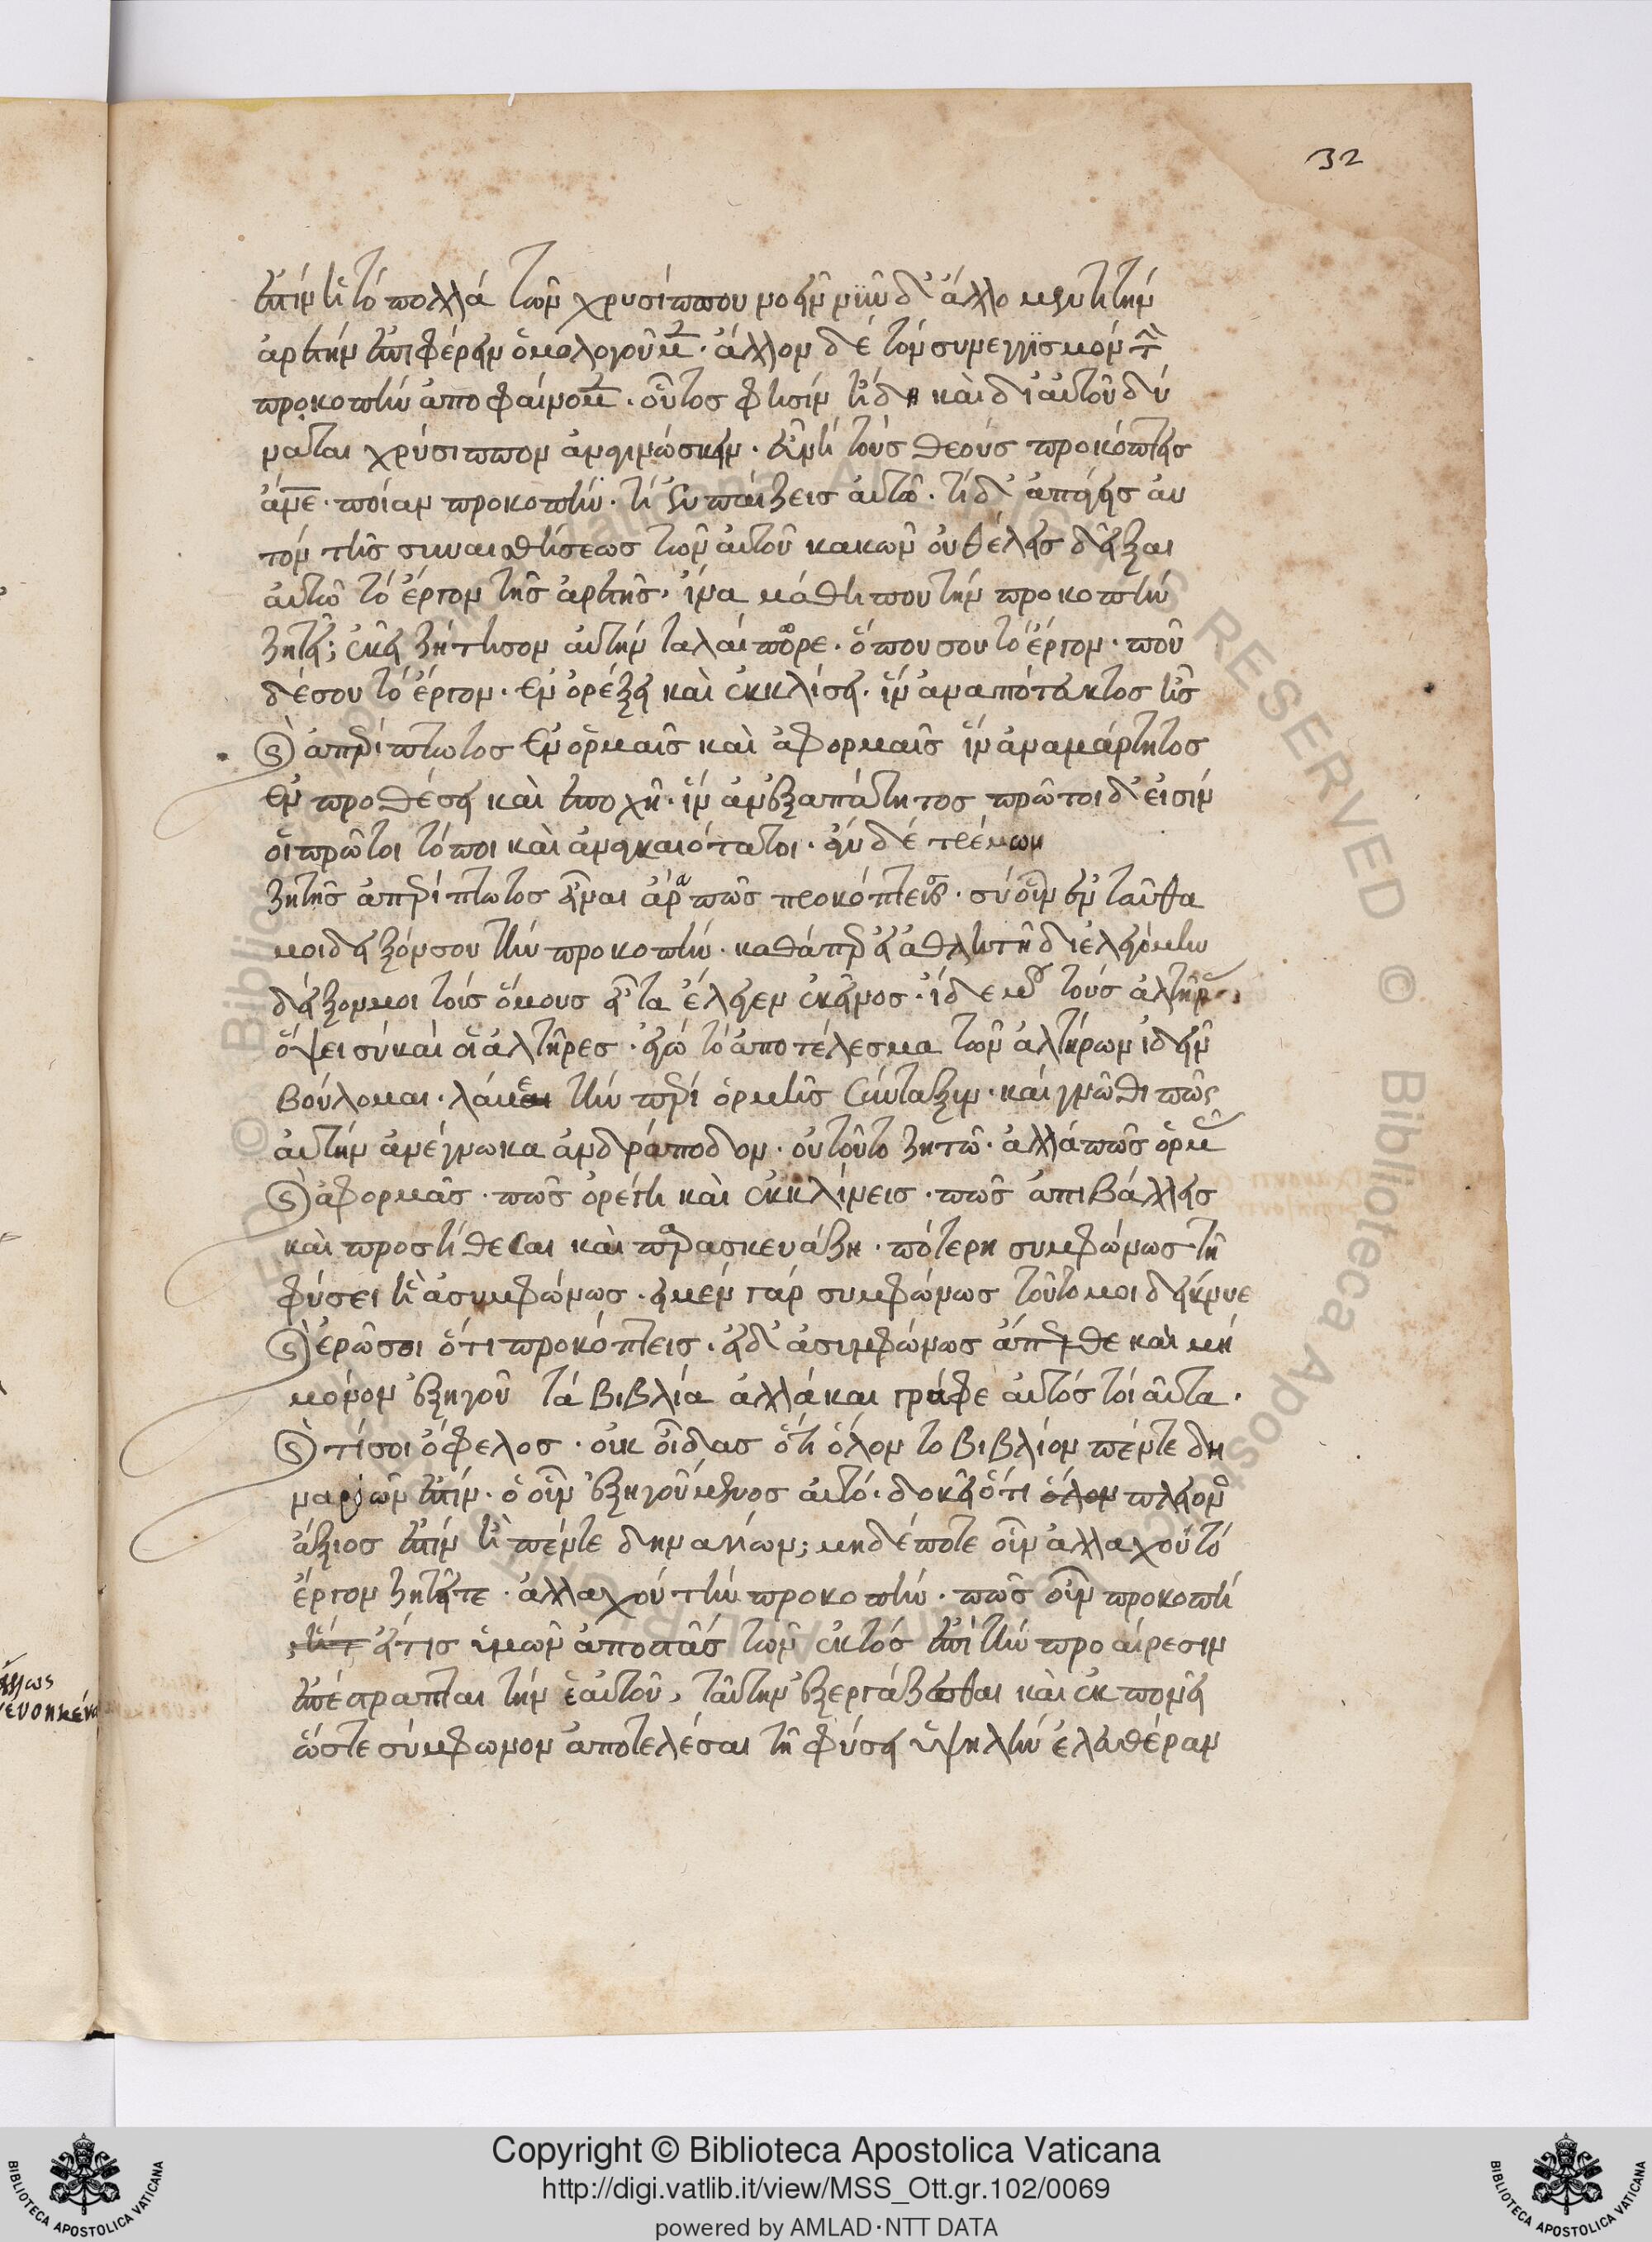 32
ἐστὶν ἢ τὸ πολλὰ τῶν χρυσίππου νοεῖν νῦν δ' ἄλλο μέν τι τὴν
ἀρετὴν ἐπιφέρειν ὁμολογοῦμεν. ἄλλον δὲ τὸν συνεγγισμὸν τὴν
προκοπὴν ἀποφαίνομεν. οὗτος φησὶν ἤδη καὶ δι αὑτοῦ δύ
ναται χρύσιππον ἀναγινώσκειν. εὖ νὴ τοὺς θεοὺς προκόπτεις
ἄνθρωπε. ποίαν προκοπήν. τί ἐμπαίζεις αὐτῶ. τί δ' ἀπάγεις αὐ
τὸν τῆς συναισθήσεως τῶν αὑτοῦ κακῶν οὐ θέλεις δεῖξαι
αὐτῶ τὸ ἔργον τῆς ἀρετῆς. ἵνα μάθη που τὴν προκοπὴν
ζητεῖ; ἐκεῖ ζήτησον αὐτὴν ταλαίπωρε. ὅπου σου τὸ ἔργον. ποῦ
δέ σου τὸ ἔργον. ἐν ὀρέξει καὶ ἐκκλίσει. ἵν' ἀναπότευκτος ἦς
καὶ ἀπερίπτωτος ἐν ὁρμαῖς καὶ ἀφορμαῖς ἵν' ἀναμάρτητος
ἐν προθέσει καὶ ἐποχῆ. ἵν' ἀνεξαπάτητος πρῶτοι δ' εἰσὶν
οἱ πρῶτοι τόποι καὶ ἀναγκαιότατοι. εἰ δὲ τρέμων
ζητεῖς ἀπερίπτωτος εἶναι ἄρα πῶς προκόπτεις. σὺ οὖν ἐνταῦθα
μοι δεῖξόν σου τὴν προκοπήν. καθάπερ εἰ ἀθλητῆ διελεγόμην
δεῖξον μοι τοὺς ὤμους εἶτα ἔλεγεν ἐκεῖνος. ἴδε μου τοὺς ἀλτῆρας.
ὄψει σὺ καὶ οἱ ἀλτῆρες. ἐγὼ τὸ ἀποτέλεσμα τῶν ἀλτήρων ἰδεῖν
βούλομαι. λάβε τὴν περὶ ὁρμῆς σύνταξιν. καὶ γνῶθι πῶς
αὐτὴν ἀνέγνωκα ἀνδράποδον. οὐ τοῦτο ζητῶ. ἀλλὰ πῶς ὁρμᾶς
καὶ ἀφορμᾶς. πῶς ὀρέγη καὶ ἐκκλίνεις. πῶς ἐπιβάλλεις
καὶ προστίθεσαι καὶ παρασκευάζη. πότερη συμφώνως τῆ
φύσει ἢ ἀσυμφώνως. εἰ μὲν γὰρ συμφώνως τοῦτο μοι δείκνυε
καὶ ἐρῶ σοι ὅτι προκόπτεις. εἰ δ' ἀσυμφώνως ἄπελθε καὶ μὴ
μόνον ἐξηγοῦ τὰ βιβλία ἀλλὰ και γράφε αὐτὸς τοιαῦτα.
καὶ τί σοι ὄφελος. οὐκ οἶδας ὅτι ὅλον το βιβλίον πέντε δη
ναρίων ἐστίν. ὁ οὖν ἐξηγούμενος αὐτό. δοκεῖ ὅτι ὅλον πλείονος
ἄξιος ἐστὶν ἢ πέντε δηναρίων; μηδέποτε οὖν ἀλλαχοῦ τὸ
ἔργον ζητεῖτε. ἀλλαχοῦ τὴν προκοπήν. πῶς οὖν προκοπὴ
εἴ τις ὑμῶν ἀποστὰς τῶν ἐκτὸς ἐπὶ τὴν προαίρεσιν
ἐπέστραπται τὴν ἑαυτοῦ, ταύτην ἐξεργάζεσθαι καὶ ἐκπονεῖ
ὥστε σύμφωνον ἀποτελέσαι τῆ φύσει ὑψηλὴν ἐλευθέραν
Copyright © Biblioteca Apostolica Vaticana
http://digi.vatlib.it/view/MSS_Ott.gr.102/0069
powered by AMLAD·NTT DATA